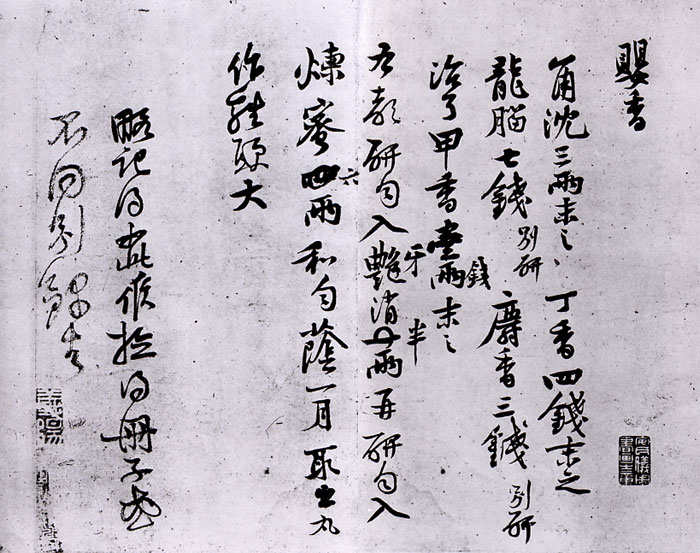 嬰香
角沈三兩末之、丁香四錢末之
龍腦七錢別研、麝香三錢別研
治了甲香壹兩錢末之
右都研勻入豔牙消半兩再研勻入
煉蜜四六兩和勻蔭一月取出丸
作雞頭大
略記得如此候檢得冊子或
不同別錄去